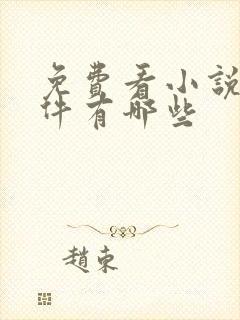 免費看小說
件有哪些
趙束